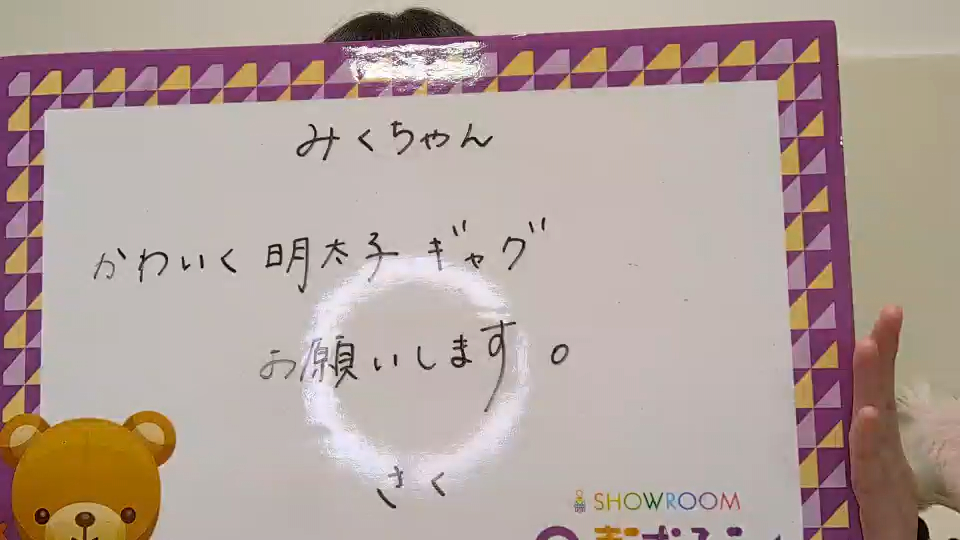 みくちゃん
かわいく 明太子 ギャグ
お願いします。
さく
SHOWROOM